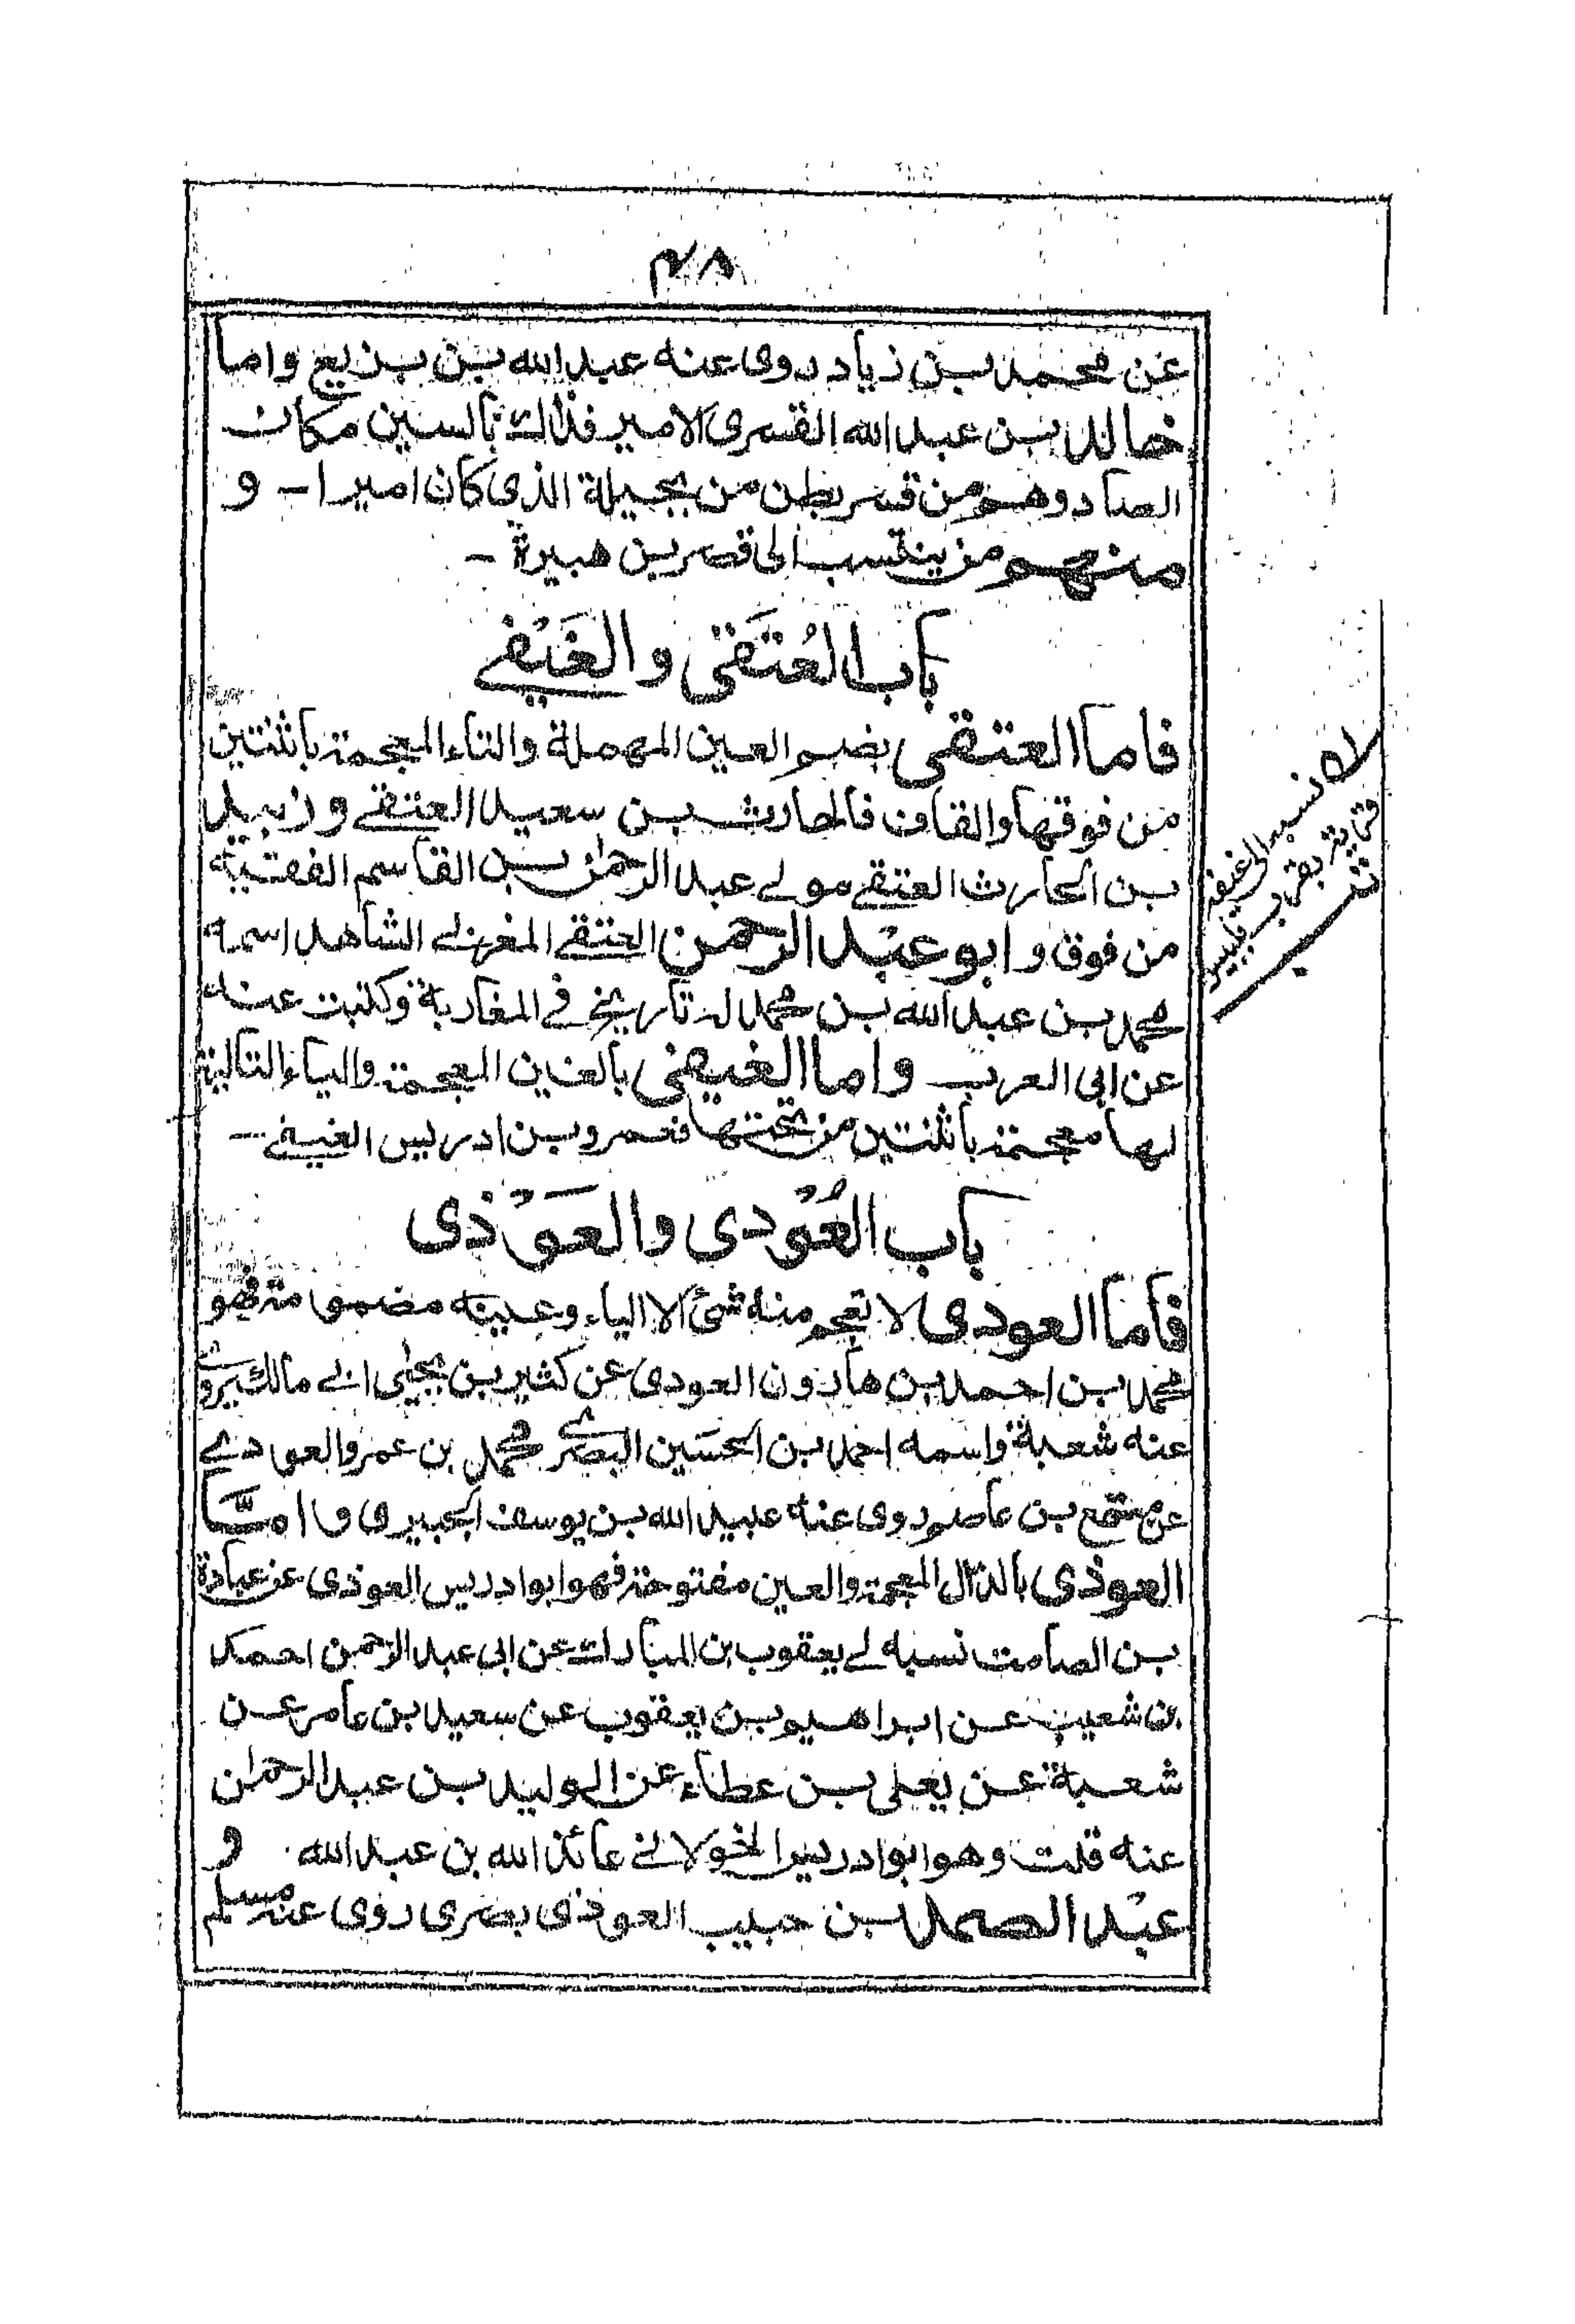 ٤٨
عن محمد بن زياد روى عنه عبد الله بن بزيع واما
خالد بن عبد الله القسرى الامير فذلك بالسين مكان
الصاد وهم من قسر بطن من بجيلة الذى كان اميرا - و
منهم من ينتسب الى قصر بن هبيرة -
باب العُتَقى والغَيْفے
فاما العتقى بضم العين المهملة والتاء المعجمة باثنتين
من فوقها والقاف فالحارث بن سعيد العتقے وزبيد
بن الحارث العتقے مولے عبد الرحمٰن بن القاسم الفقيه
من فوق و ابو عبد الرحمن العتقے المغربے الشاهد اسمه
محمد بن عبد الله بن محمد له تاريخ فے المغاربة وكتبت عنه
عن ابى العرب واما الغيفى بالغين المعجمة والياء التالية
لها معجمة باثنتين من تحتها فعمرو بن ادريس الغيفے --
باب العُوْدى والعَوْذى
فاما العودى لا تعجم منه شئ الا الياء وعينه مضمومة فهو
محمد بن احمد بن هارون العودى عن كثير بن يحيٰى ابے مالك يروے
عنه شعبة واسمه احمد بن الحسين البصرے محمد بن عمرو العودے
عن بن عاصم روى عنه عبيد الله بن يوسف الجبيرى و امّا
العوذى بالذال المعجمة والعين مفتوحة فهو ابو ادريس العوذى عن عبادة
بن الصامت نسبه لے يعقوب بن المبارك عن ابى عبد الرحمن احمد
بن شعيب عن ابراهيم بن يعقوب عن سعيد بن عامر عن
شعبة عن يعلى بن عطاء عن الوليد بن عبد الرحمٰن
عنه قلت وهو ابو ادريس الخولانے عائذ الله بن عبد الله و
عبد الصمد بن حبيب العوذى بصرى روى عنه مسلم
نسبه الى غيفة
قرية بقرب بلبيس